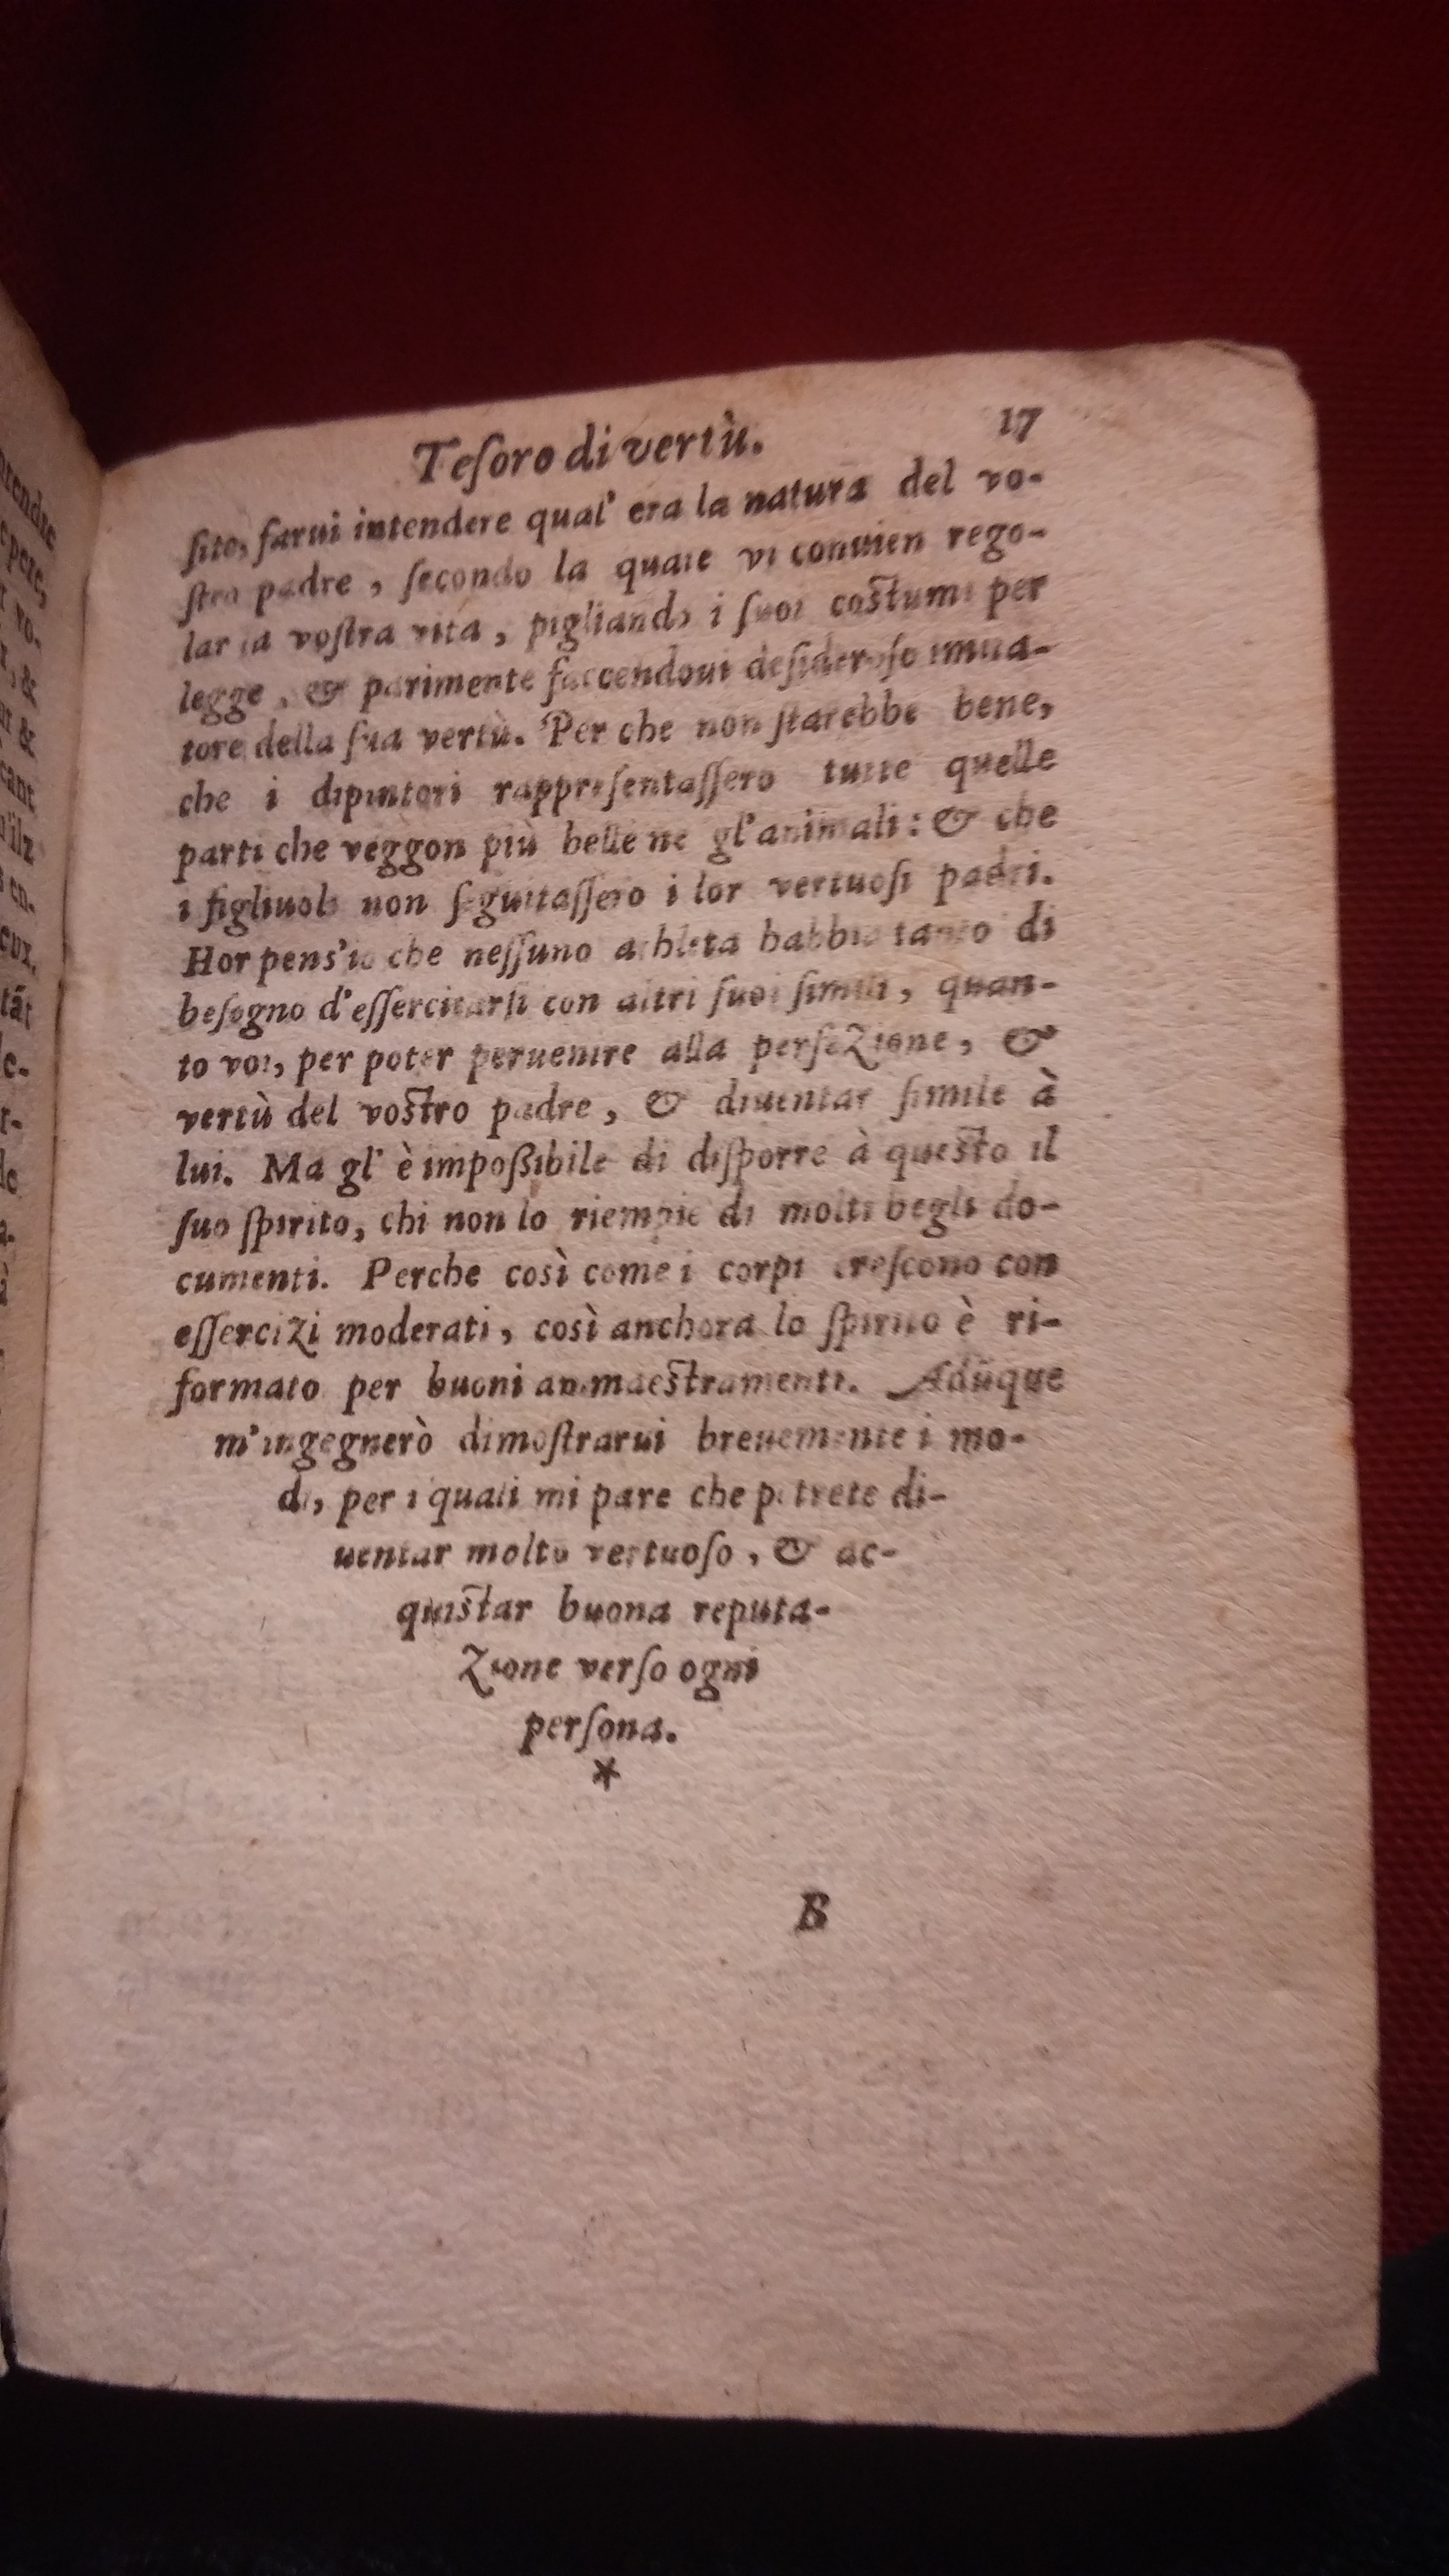 Teſoro di vertù. 17
ſito, farui intendere qual' era la natura del vo-
ſtro padre, ſecondo la quale vi conuien rego-
lar la voſtra vita, pigliando i ſuoi coſtumi per
legge, & parimente faccendoui deſideroſo imita-
tore della ſua vertù. Per che non ſtarebbe bene,
che i dipintori rappreſentaſſero tutte quelle
parti che veggon più belle ne gl'animali: & che
i figliuoli non ſeguitaſſero i lor vertuoſi padri.
Hor pens'io che neſſuno athleta habbia tanto di
beſogno d'eſſercitarſi con altri ſuoi ſimili, quan-
to voi, per poter peruenire alla perfezione, &
vertù del voſtro padre, & diuentar ſimile à
lui. Ma gl' è impoßibile di diſporre à queſto il
ſuo ſpirito, chi non lo riempie di molti begli do-
cumenti. Perche così come i corpi creſcono con
eſſercizi moderati, così anchora lo ſpirito è ri-
formato per buoni ammaeſtramenti. Adūque
m'ingegnerò dimoſtrarui breuemente i mo-
di, per i quali mi pare che potrete di-
uentar molto vertuoſo, & ac-
quiſtar buona reputa-
zione verſo ogni
perſona.
*
B
ntendre
pere,
vo-
&
&
cant
u'ilz
en-
eux.
tāt